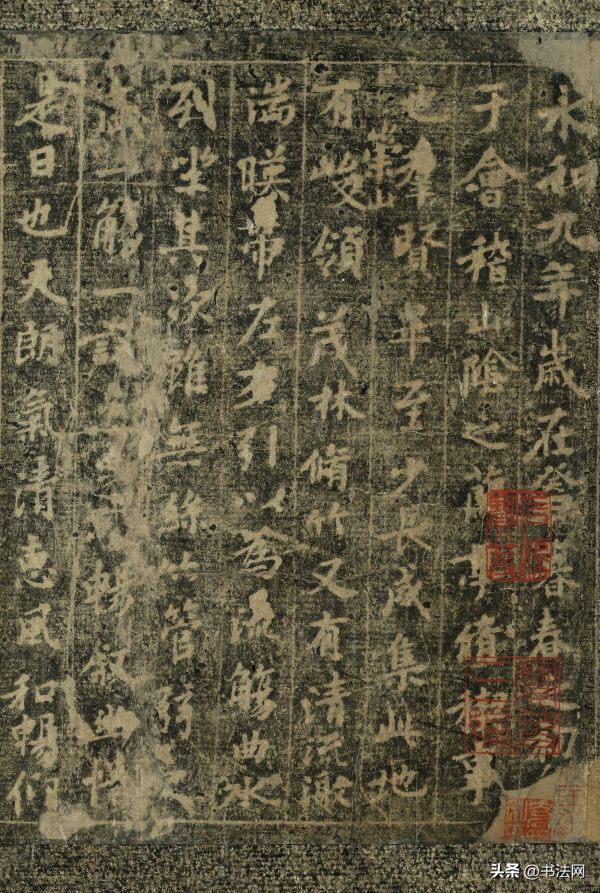 永和九年歲在癸暮春之初
于會稽山陰之蘭亭脩禊事
也羣賢畢至少長咸集此地
有崇山峻領茂林脩竹又有清流激
湍暎帶左右引以為流觴曲水
列坐其次雖無絲竹管弦之
盛一觴一詠以暢敘幽情
是日也天朗氣清惠風和暢仰
头条 @书法网